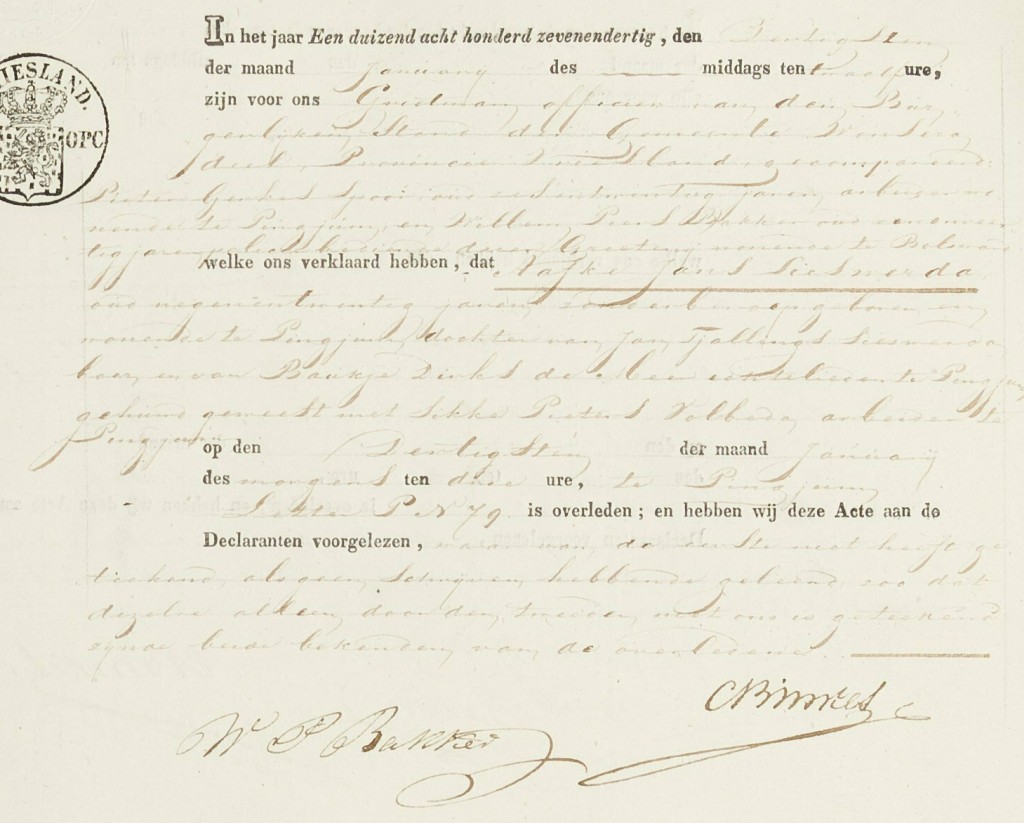 In het jaar Een duizend acht honderd zevenendertig, den Dertigsten
der maand Januarij des —— middags ten twaalf ure,
zijn voor ons Grietman, officier van den Bur
gerlijken Stand der Gemeente Wonsera
deel, Provincie Vriesland gecompareerd:
Pieter Gerkes Spooi oud jaren, arbeider wo
nende te Pingjum, en Willem Piers Bakker oud
tig jaren wonende te Bolsward
welke ons verklaard hebben, dat Aafke Jans Siesmerda
oud negenentwintig jaren, zonder beroep, geboren en
wonende te Pingjum, dochter van Jan Tjallings Siesmerda
boer, en van Baukje Dirks de Boer echtelieden te Pingjum
gehuwd geweest met Sikke Pieters Volbeda, arbeider te
Pingjum
op den Dertigsten der maand Januarij
des morgens ten drie ure, te Pingjum
Letter P N 79 is overleden; en hebben wij deze Acte aan de
Declaranten voorgelezen, waar van de eerste niet heeft ge
teekend, als geen schrijven hebbende geleerd, zoo dat
dezelve alleen door den tweeden met ons is geteekend
zijnde beide bekenden van de overledene.
W P Bakker
VRIESLAND.
OPC